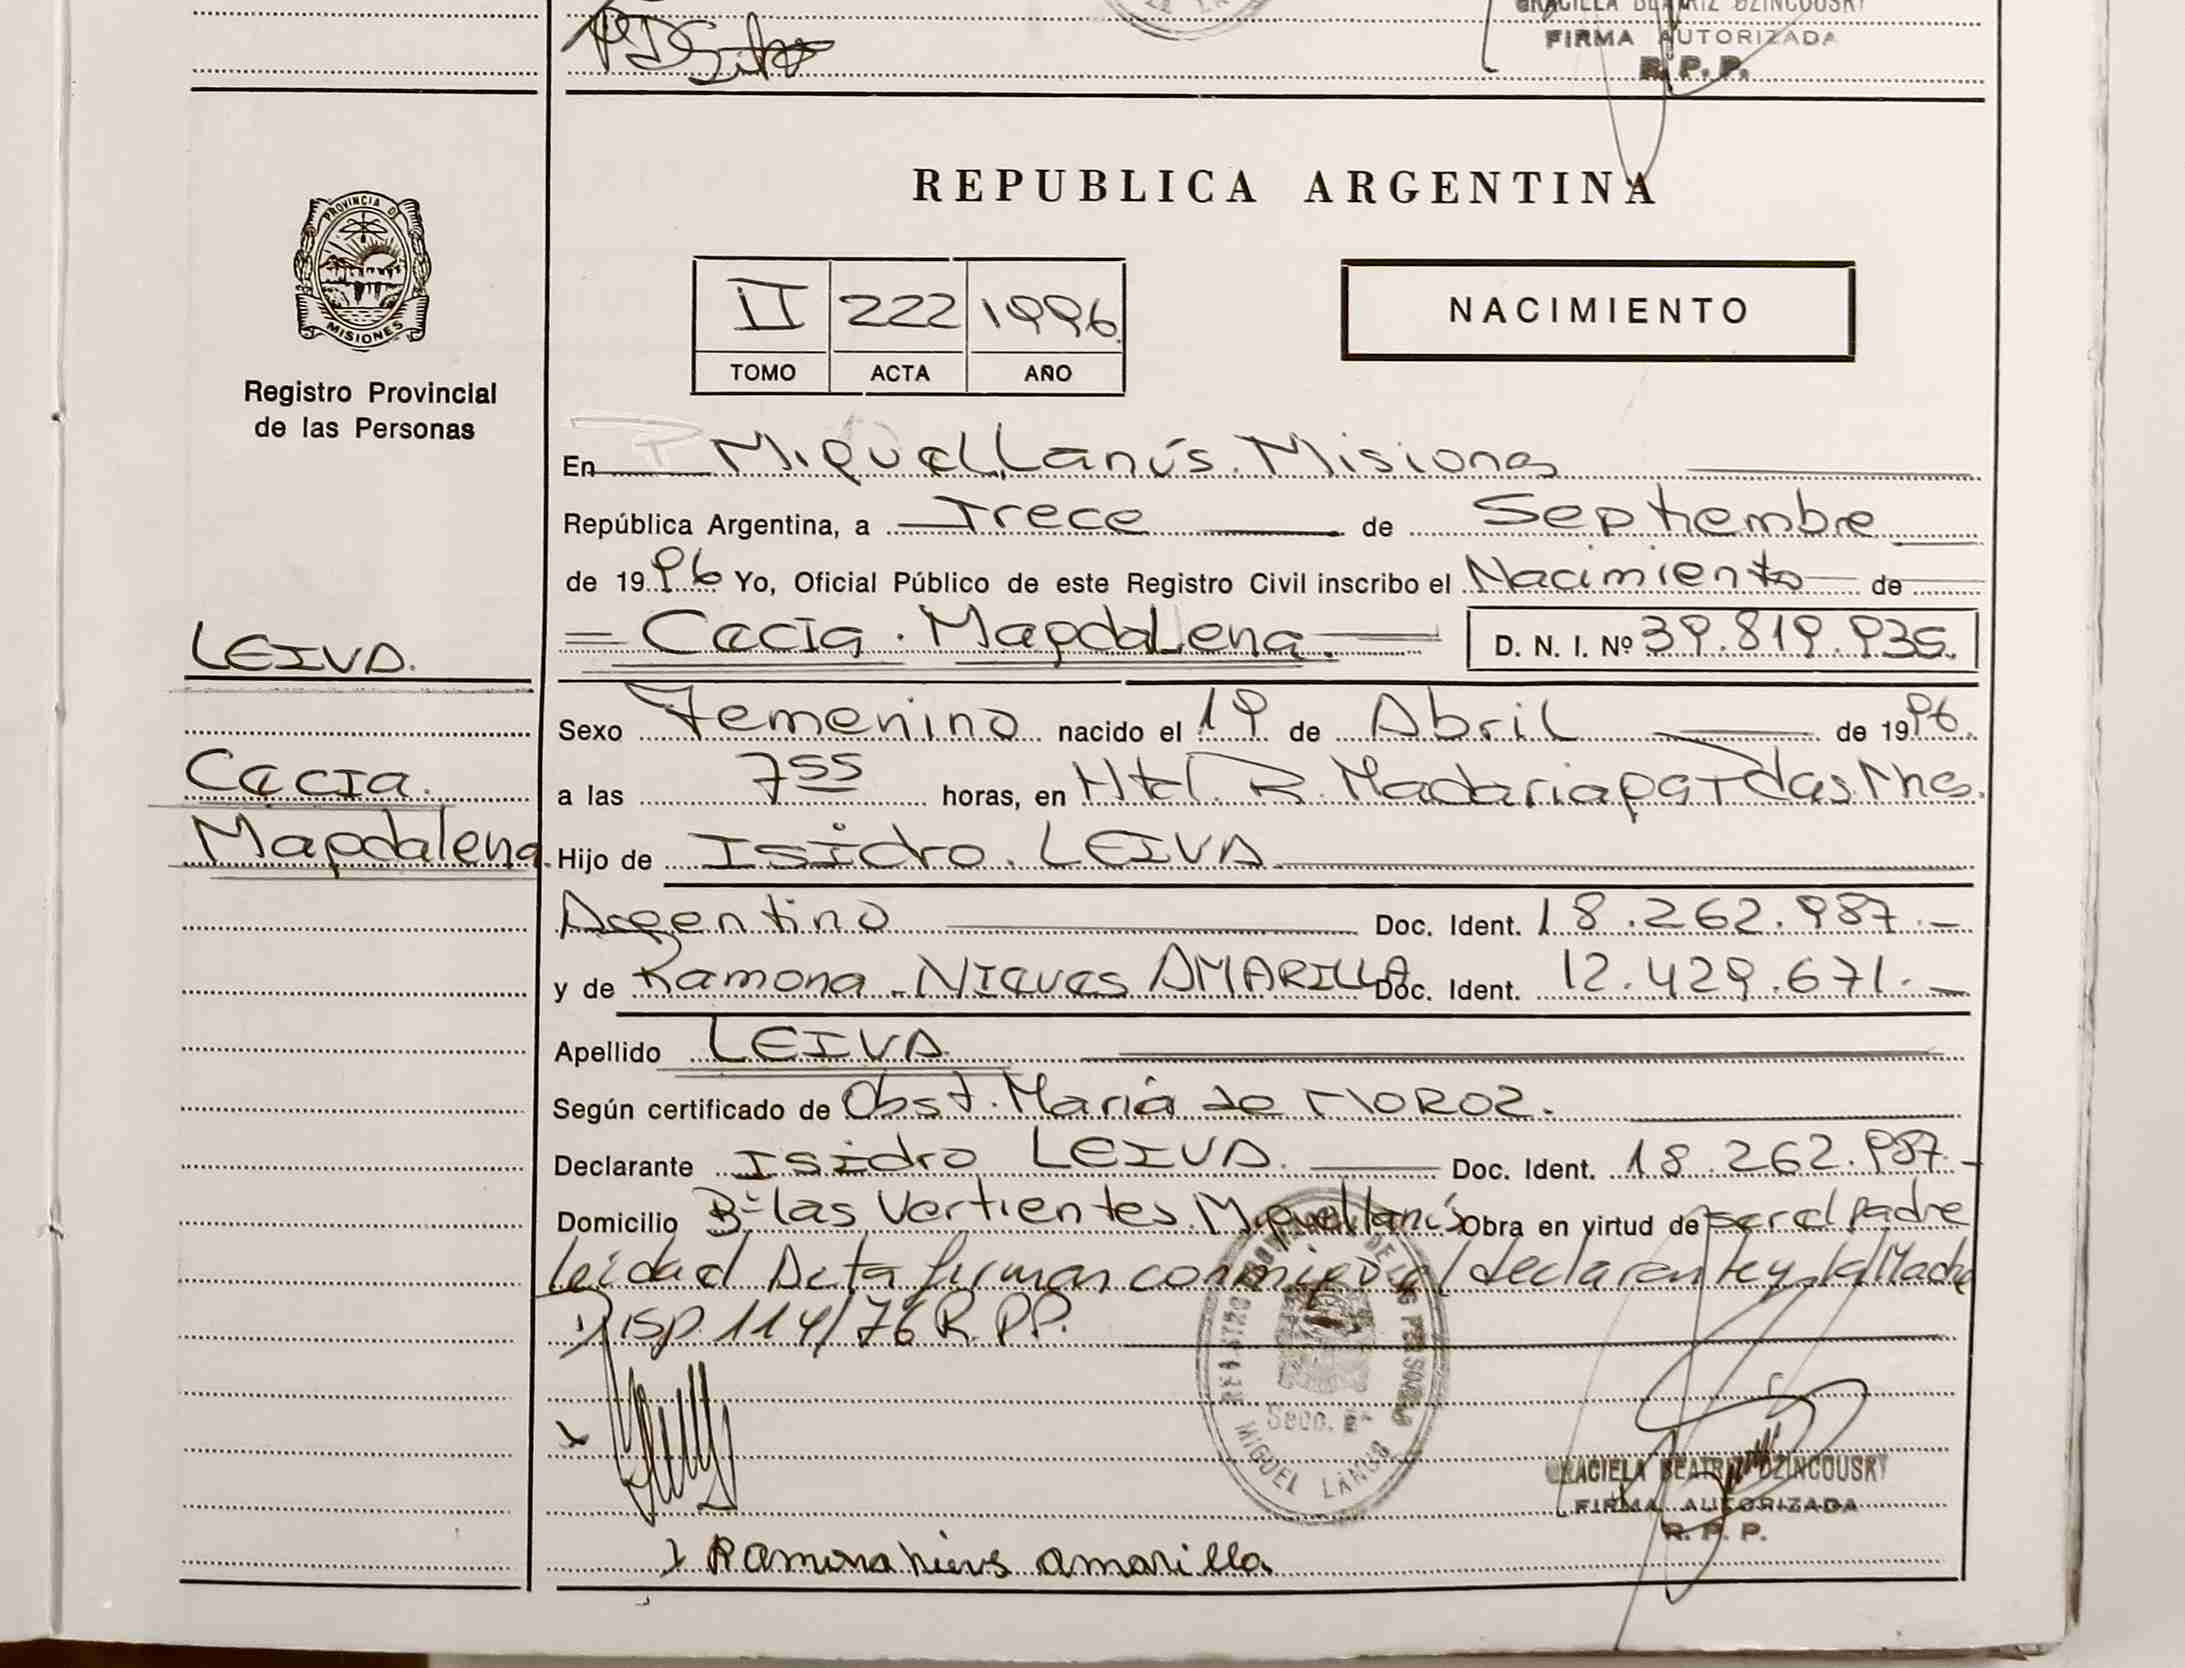 GRACIELA BEATRIZ DZINCOUSKY
FIRMA AUTORIZADA
R. P. P.
PROVINCIA DE
MISIONES
Registro Provincial
de las Personas
REPUBLICA ARGENTINA
II 222 1996
TOMO ACTA AÑO
NACIMIENTO
En Miguel Lanús. Misiones
República Argentina, a Trece de Septiembre
de 1996 Yo, Oficial Público de este Registro Civil inscribo el Nacimiento de
Cecia. Magdalena. D. N. I. Nº 39.819.935.
LEIVA.
Cecia.
Magdalena.
Sexo Femenino nacido el 19 de Abril de 1996.
a las 7 55 horas, en Htal. R. Madariaga Pdas Mnes.
Hijo de Isidro. LEIVA
Argentino Doc. Ident. 18.262.987.-
y de Ramona Nieves AMARILLA Doc. Ident. 12.429.671.-
Apellido LEIVA
Según certificado de Obst. María de MOROZ.
Declarante Isidro LEIVA. Doc. Ident. 18.262.987.-
Domicilio Bº las Vertientes. Miguel lanús Obra en virtud de ser el padre
leída el Acta firman conmigo el declarante y la Madre
Disp. 114/76 R.P.P.
REGISTRO PROVINCIAL DE LAS PERSONAS
Secc. 2ª
MIGUEL LANUS
GRACIELA BEATRIZ DZINCOUSKY
FIRMA AUTORIZADA
R. P. P.
Ramona nievs amarilla